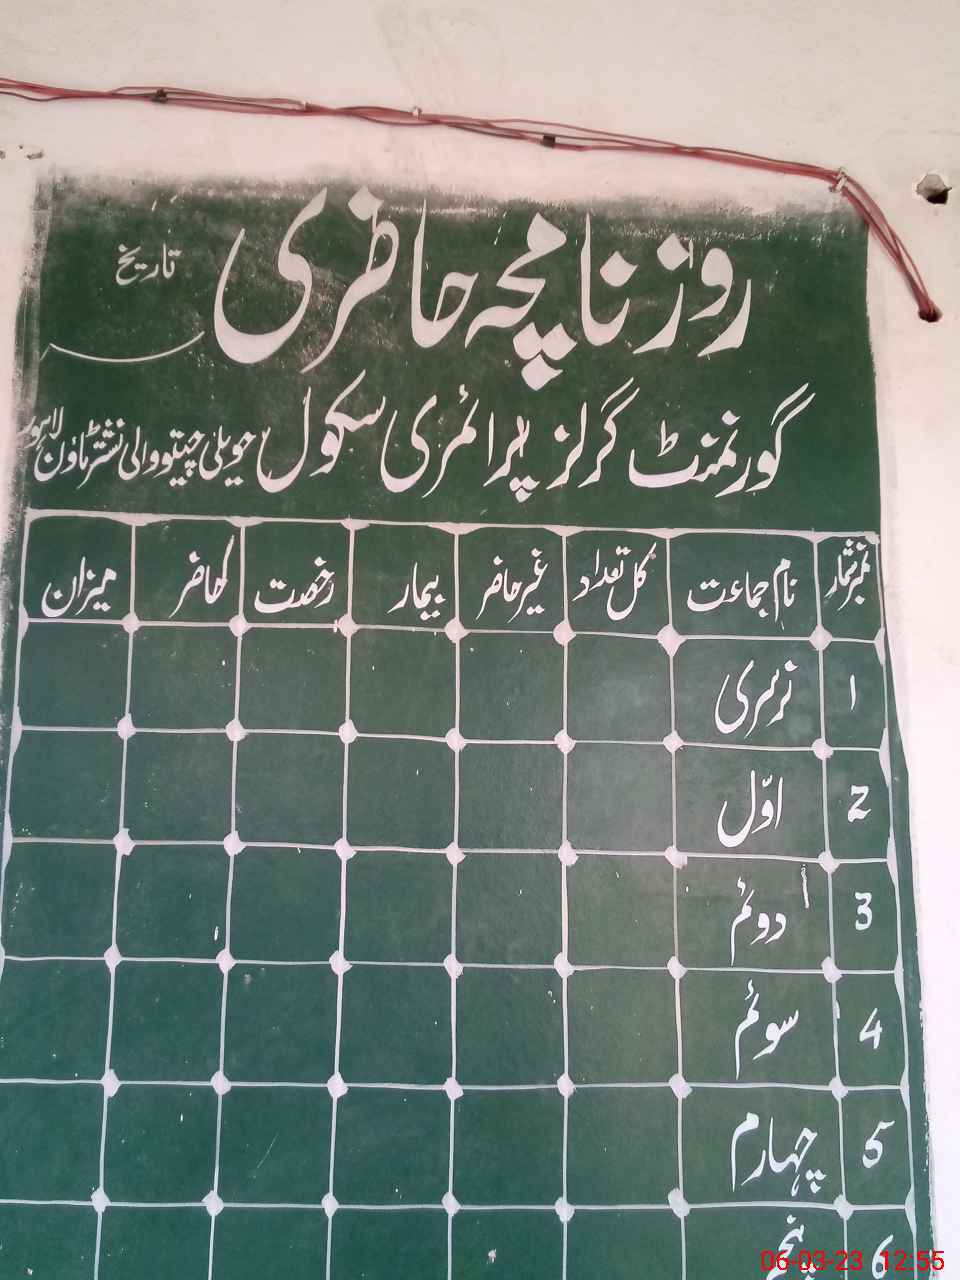 روزنامچہ حاظری تاریخ
گورنمنٹ گرلز پرائمری سکول حویلی چیتو والی نشتر ٹاؤن لاہور
نمبر شمار نام جماعت کل تعداد غیر حاظر بیمار رخصت حاظر میزان
1 نرسری
2 اوّل
3 دوئم
4 سوئم
5 چہارم
6 پنجم
06-03-23 12:55